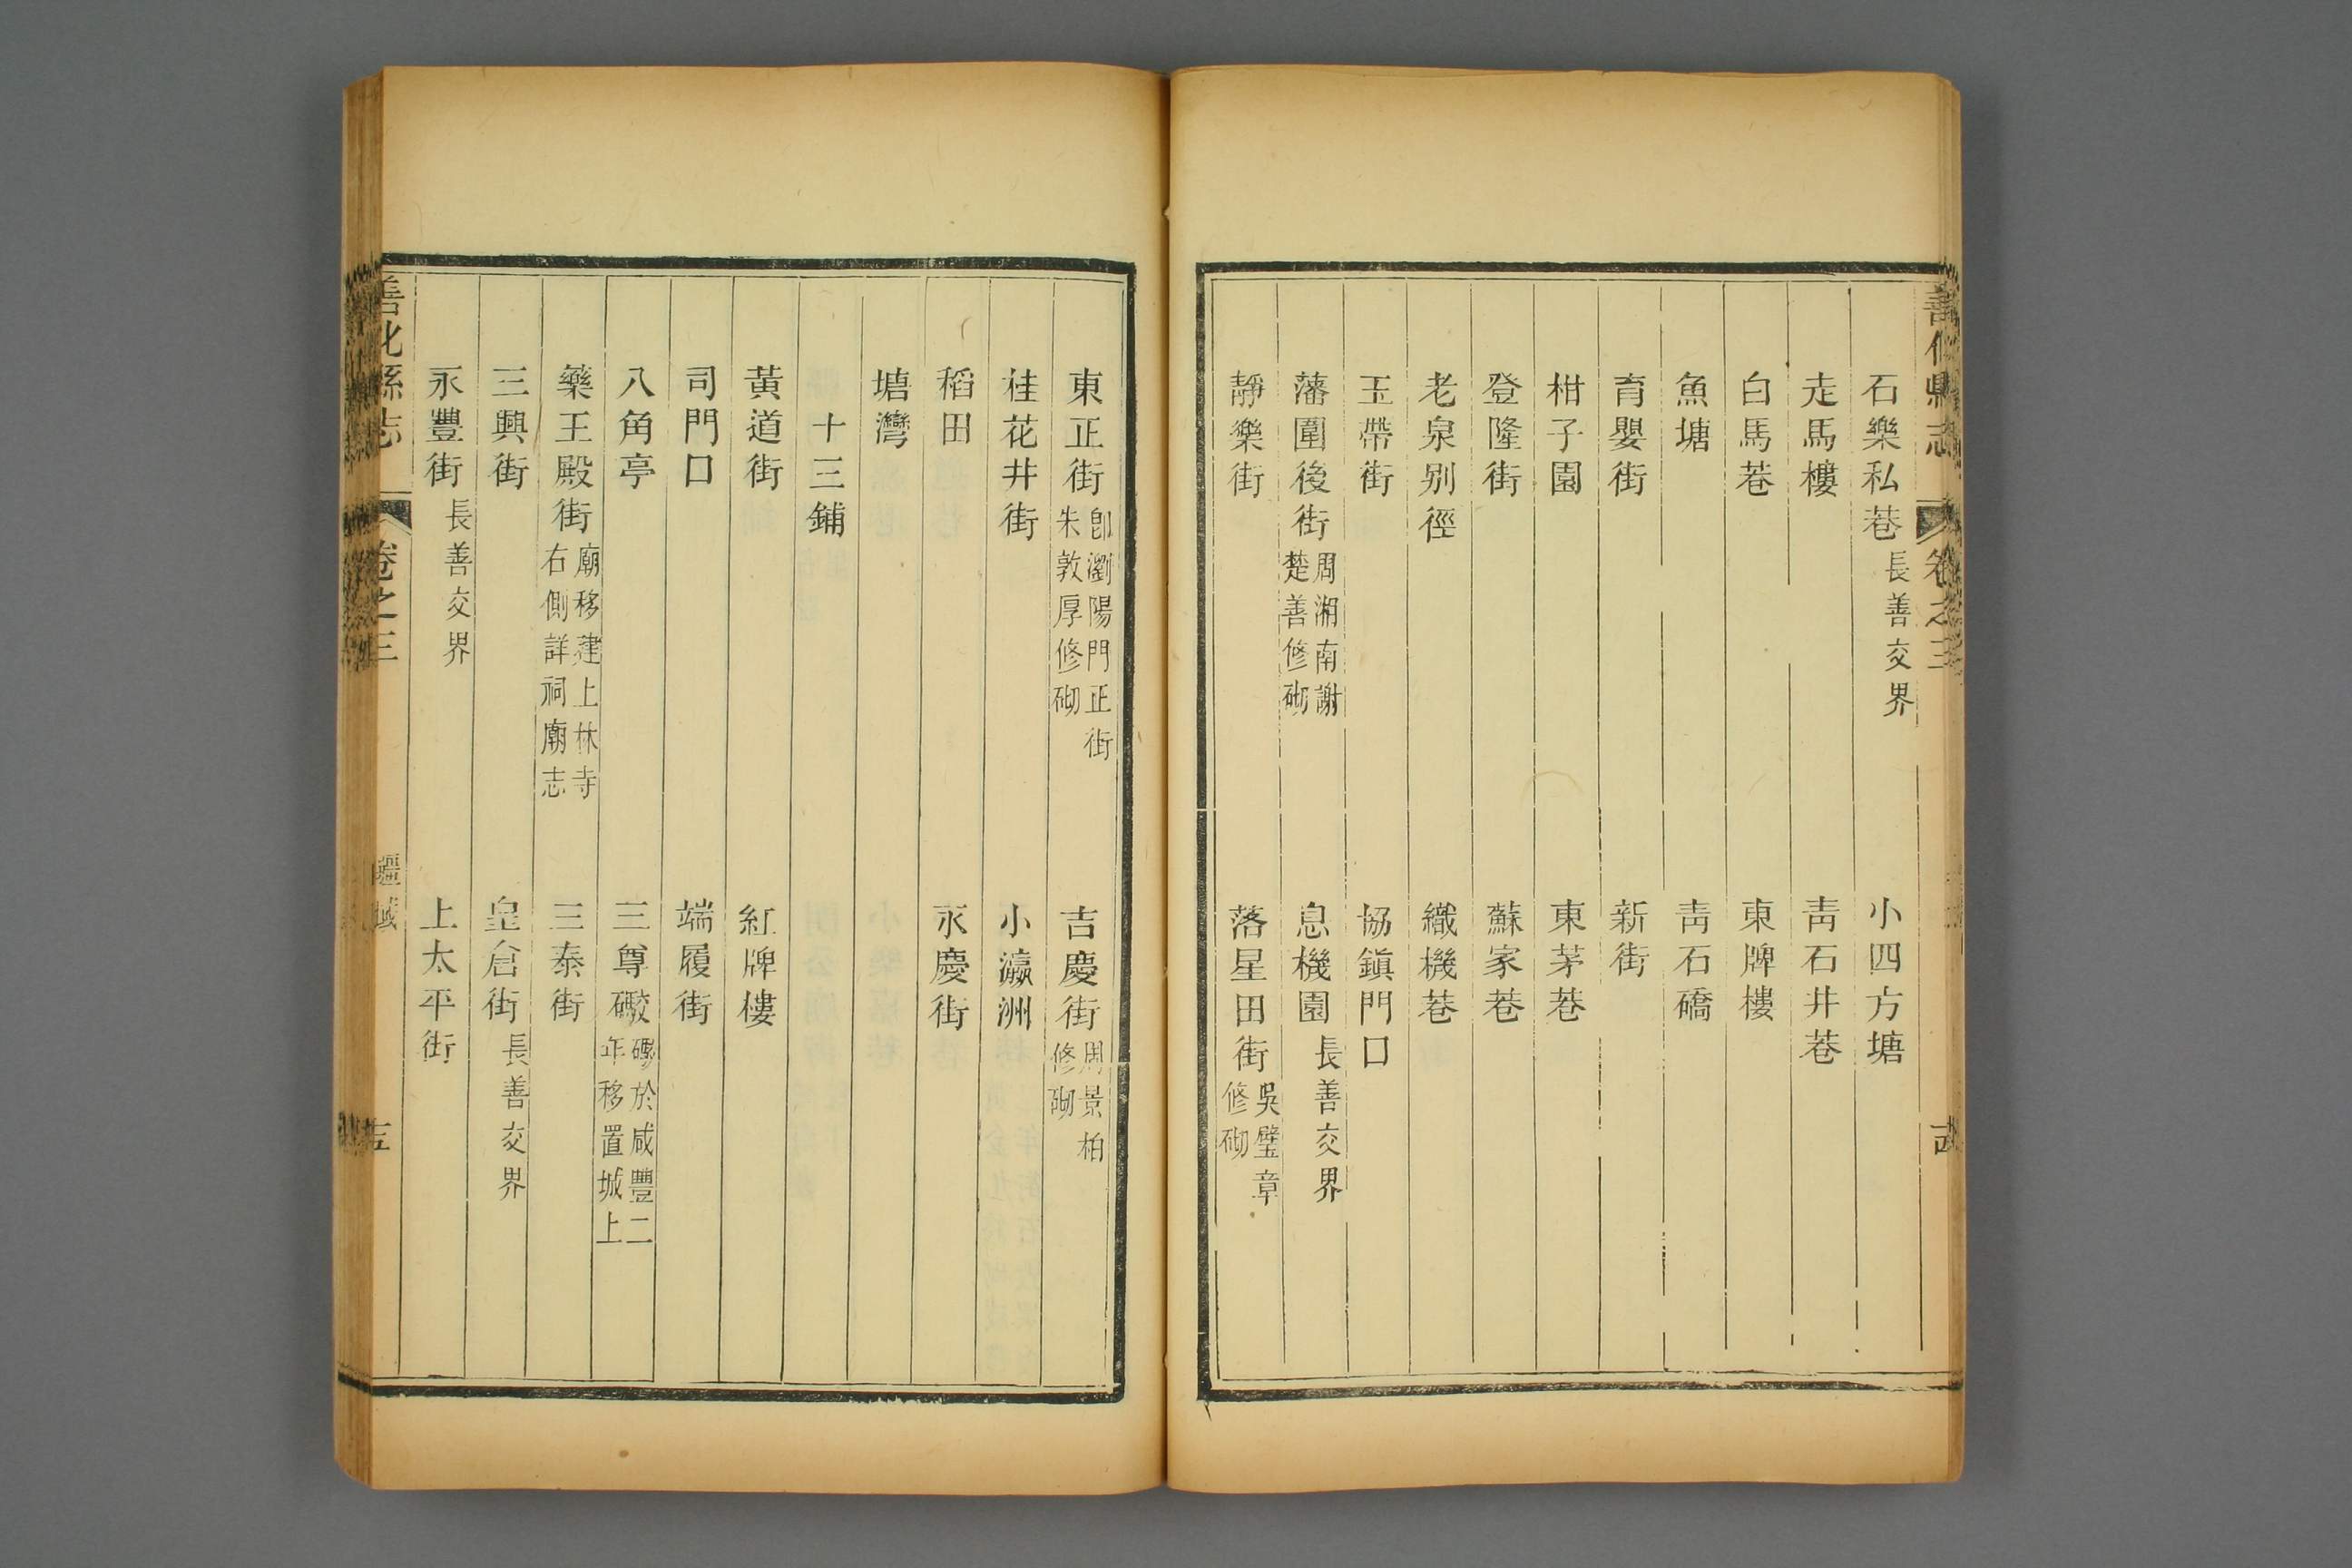 善化縣志 卷之三
石樂私巷 長善交界 小四方塘
走馬樓 靑石井巷
白馬巷 東牌樓
魚塘 靑石橋
育嬰街 新街
柑子園 東茅巷
登隆街 蘇家巷
老泉别徑 織機巷
玉帶街 協鎭門口
藩圍後街 周湘南謝楚善修砌 息機園 長善交界
靜樂街 落星田街 吳璧章修砌
東正街 卽瀏陽門正街朱敦厚修砌 吉慶街 周景柏修砌
桂花井街 小瀛洲
稻田 永慶街
塘灣
十三鋪
黃道街 紅牌樓
司門口 端履街
八角亭 三尊礮 礮於咸豐二年移置城上
藥王殿街 廟移建上林寺右側詳祠廟志 三泰街
三興街 皇倉街 長善交界
永豐街 長善交界 上太平街
善化縣志 卷之三 疆域